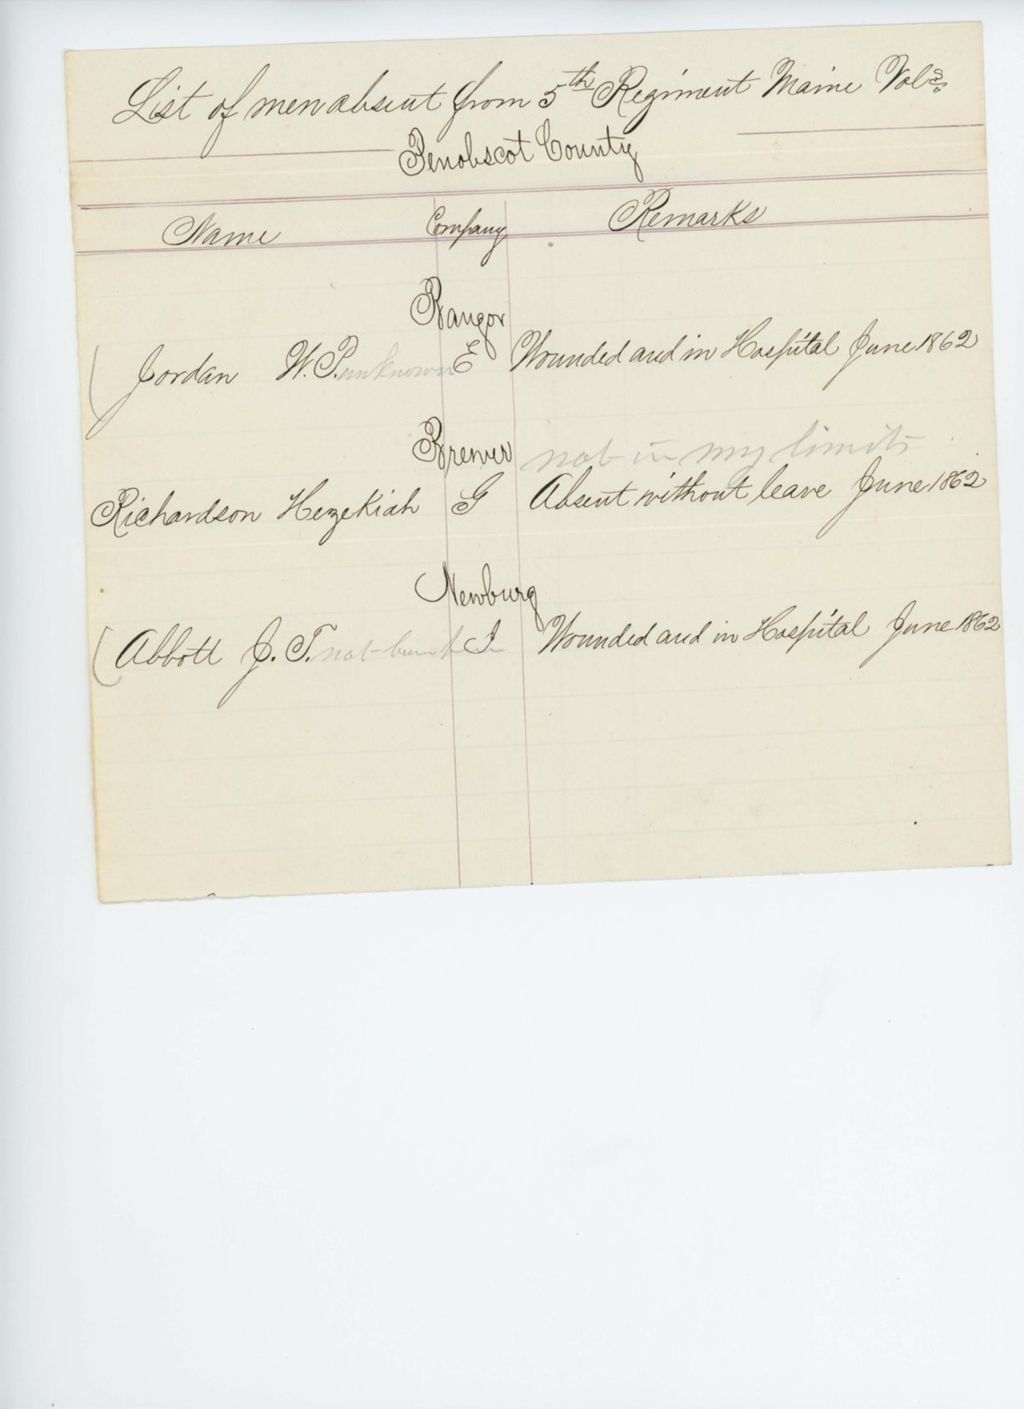 List of men absent from 5th Regiment Maine Vols.
Penobscot County
Name Company Remarks
Bangor
Jordan W. P. unknown E Wounded and in Hospital June 1862
Brewer not in my limits
Richardson Hezekiah G Absent without leave June 1862
Newburg
Abbott J. T. not I Wounded and in Hospital June 1862